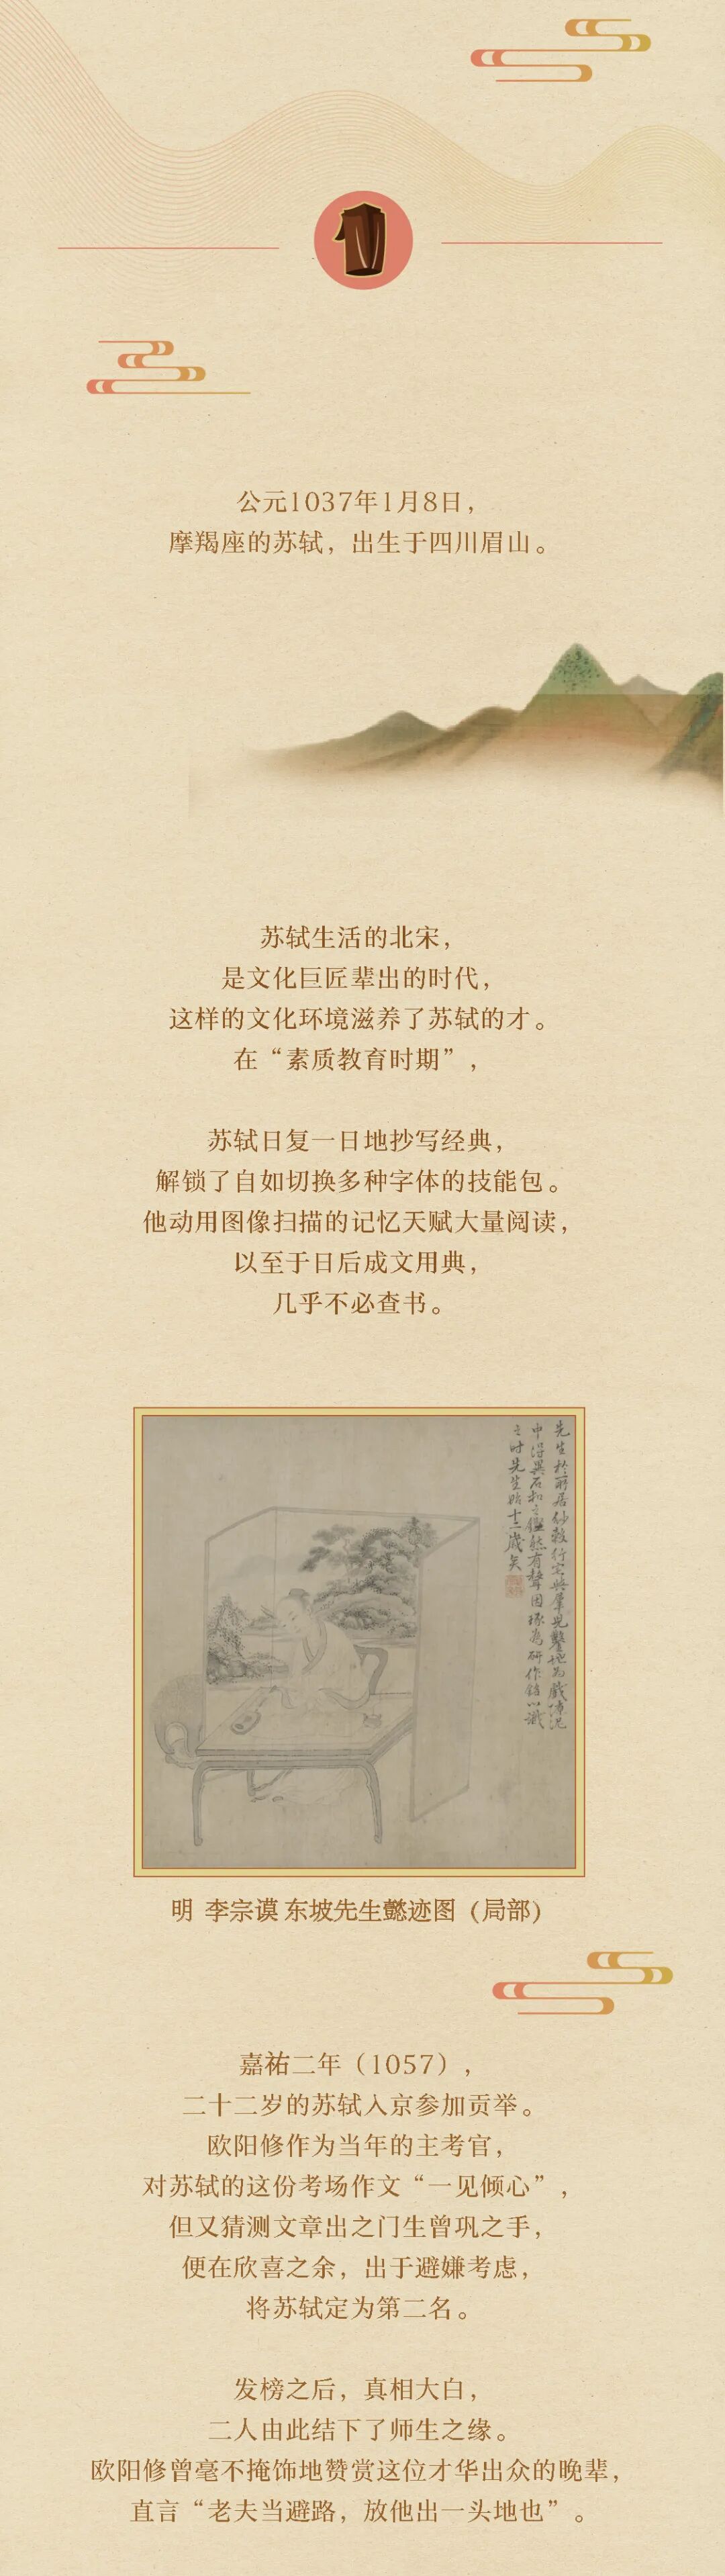 公元1037年1月8日，
摩羯座的苏轼，出生于四川眉山。
苏轼生活的北宋，
是文化巨匠辈出的时代，
这样的文化环境滋养了苏轼的才。
在“素质教育时期”，
苏轼日复一日地抄写经典，
解锁了自如切换多种字体的技能包。
他动用图像扫描的记忆天赋大量阅读，
以至于日后成文用典，
几乎不必查书。
先生於所居紗縠行宅與羣兒鑿地為戲
中得異石扣之鏗然有聲因琢為研作銘以識
之时先生始十二歲矣
明 李宗谟 东坡先生懿迹图（局部）
嘉祐二年（1057），
二十二岁的苏轼入京参加贡举。
欧阳修作为当年的主考官，
对苏轼的这份考场作文“一见倾心”，
但又猜测文章出之门生曾巩之手，
便在欣喜之余，出于避嫌考虑，
将苏轼定为第二名。
发榜之后，真相大白，
二人由此结下了师生之缘。
欧阳修曾毫不掩饰地赞赏这位才华出众的晚辈，
直言“老夫当避路，放他出一头地也”。